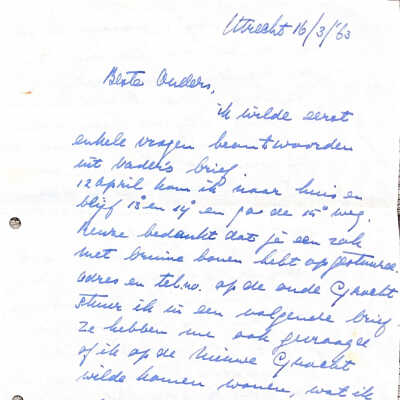 Utrecht 16/3/'63
Beste Ouders,
ik wilde eerst
enkele vragen beantwoorden
uit vaders brief.
12 april kom ik naar huis en
blijf 13e en 14e en ga de 15e weg.
Reuze bedankt dat je een zak
met bruine bonen hebt opgestuurd.
adres en tel.no. op de oude Gracht
stuur ik in een volgende brief.
Ze hebben me ook gevraagd
of ik op de Nieuwe Gracht
wilde komen wonen, wat ik